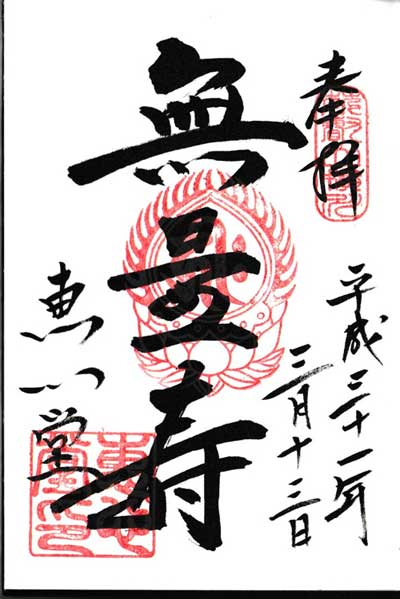 奉拝
平成三十一年
三月十三日
無量寿
恵心堂
恵心堂印